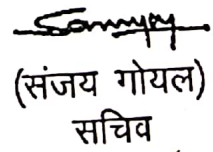 (संजय गोयल)
सचिव